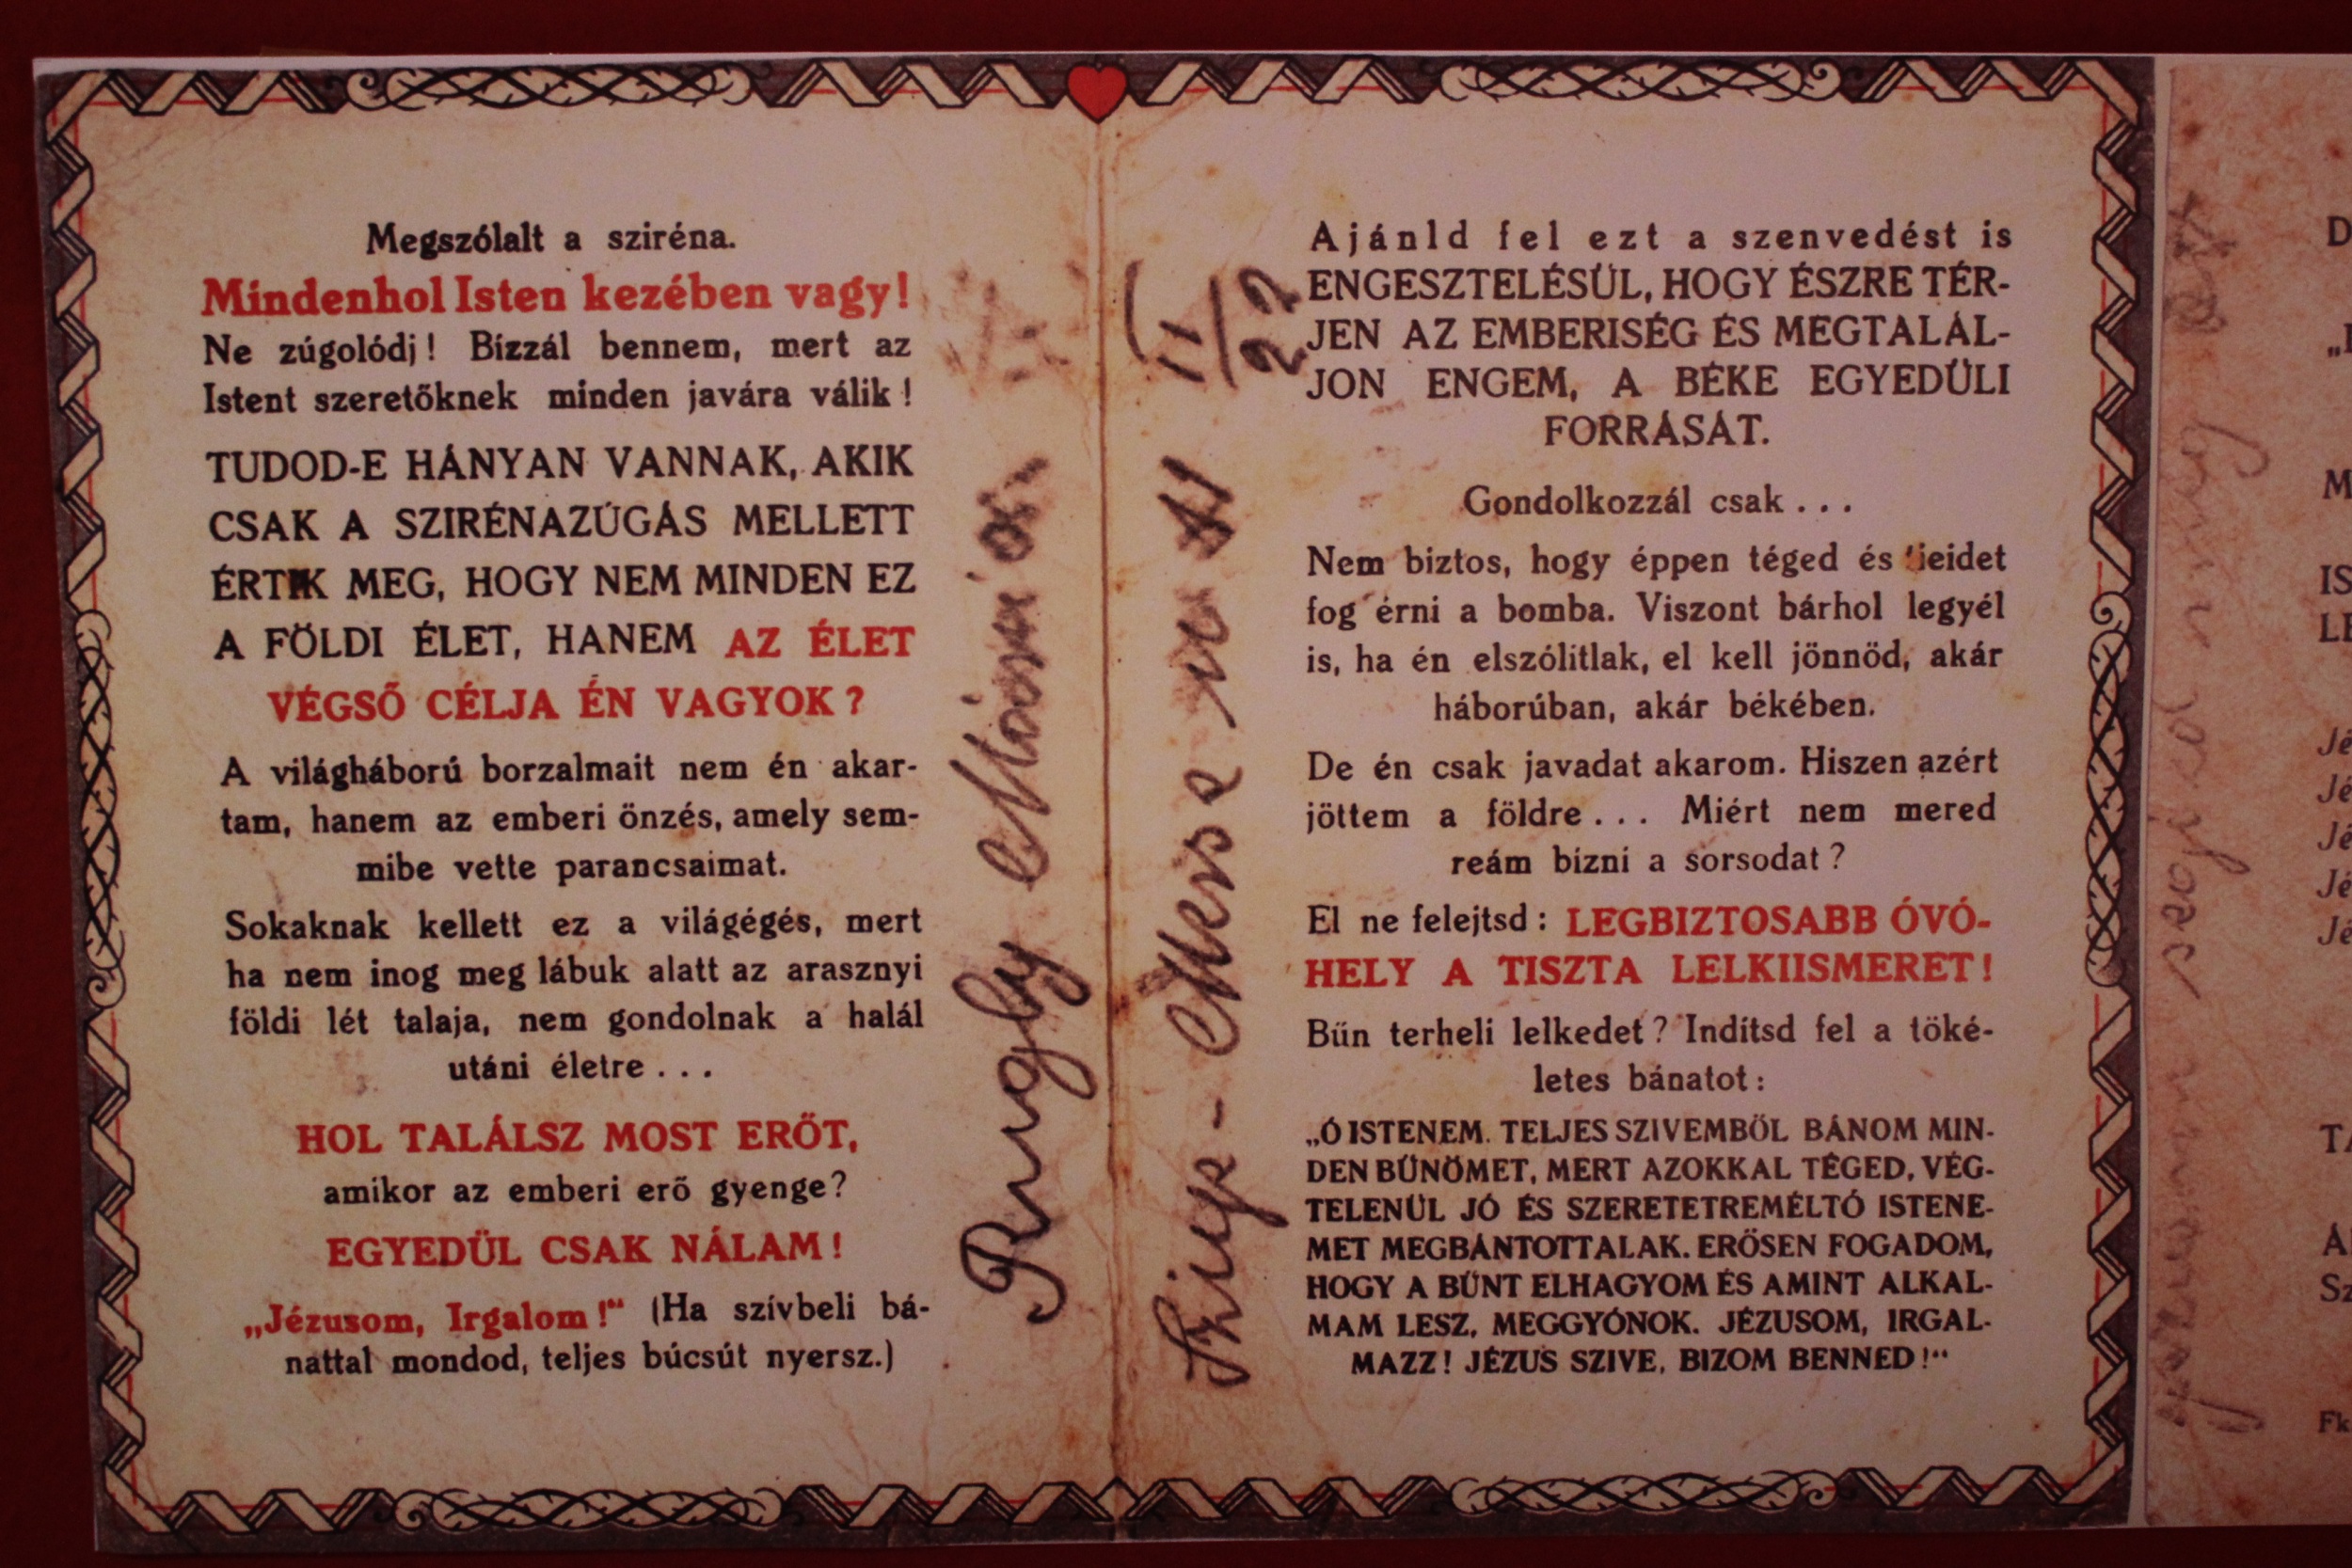 Megszólalt a sziréna.
Mindenhol Isten kezében vagy!
Ne zúgolódj! Bízzál bennem, mert az
Istent szeretőknek minden javára válik!
TUDOD-E HÁNYAN VANNAK, AKIK
CSAK A SZIRÉNAZÚGÁS MELLETT
ÉRTIK MEG, HOGY NEM MINDEN EZ
A FÖLDI ÉLET, HANEM AZ ÉLET
VÉGSŐ CÉLJA ÉN VAGYOK?
A világháború borzalmait nem én akar-
tam, hanem az emberi önzés, amely sem-
mibe vette parancsaimat.
Sokaknak kellett ez a világégés, mert
ha nem inog meg lábuk alatt az arasznyi
földi lét talaja, nem gondolnak a halál
utáni életre...
HOL TALÁLSZ MOST ERŐT,
amikor az emberi erő gyenge?
EGYEDÜL CSAK NÁLAM!
„Jézusom, Irgalom!“ (Ha szívbeli bá-
nattal mondod, teljes búcsút nyersz.)
Ajánld fel ezt a szenvedést is
ENGESZTELÉSÜL, HOGY ÉSZRE TÉR-
JEN AZ EMBERISÉG ÉS MEGTALÁL-
JON ENGEM, A BÉKE EGYEDÜLI
FORRÁSÁT.
Gondolkozzál csak...
Nem biztos, hogy éppen téged és tieidet
fog érni a bomba. Viszont bárhol legyél
is, ha én elszólítlak, el kell jönnöd, akár
háborúban, akár békében.
De én csak javadat akarom. Hiszen azért
jöttem a földre... Miért nem mered
reám bízni a sorsodat?
El ne felejtsd: LEGBIZTOSABB ÓVÓ-
HELY A TISZTA LELKIISMERET!
Bűn terheli lelkedet? Indítsd fel a töké-
letes bánatot:
„Ó ISTENEM. TELJES SZIVEMBŐL BÁNOM MIN-
DEN BŰNÖMET, MERT AZOKKAL TÉGED, VÉG-
TELENÜL JÓ ÉS SZERETETREMÉLTÓ ISTENE-
MET MEGBÁNTOTTALAK. ERŐSEN FOGADOM,
HOGY A BŰNT ELHAGYOM ÉS AMINT ALKAL-
MAM LESZ, MEGGYÓNOK. JÉZUSOM, IRGAL-
MAZZ! JÉZUS SZIVE, BIZOM BENNED!“